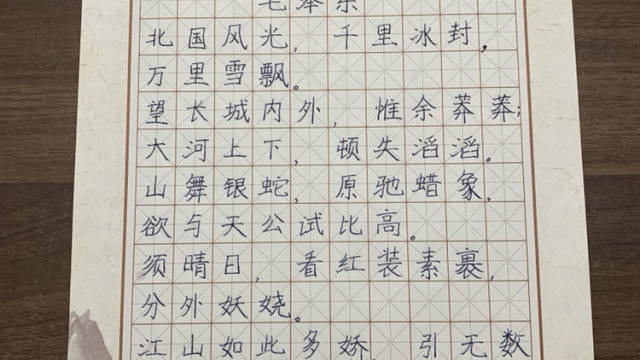 毛泽东
北国风光，千里冰封，
万里雪飘。
望长城内外，惟余莽莽；
大河上下，顿失滔滔。
山舞银蛇，原驰蜡象，
欲与天公试比高。
须晴日，看红装素裹，
分外妖娆。
江山如此多娇，引无数